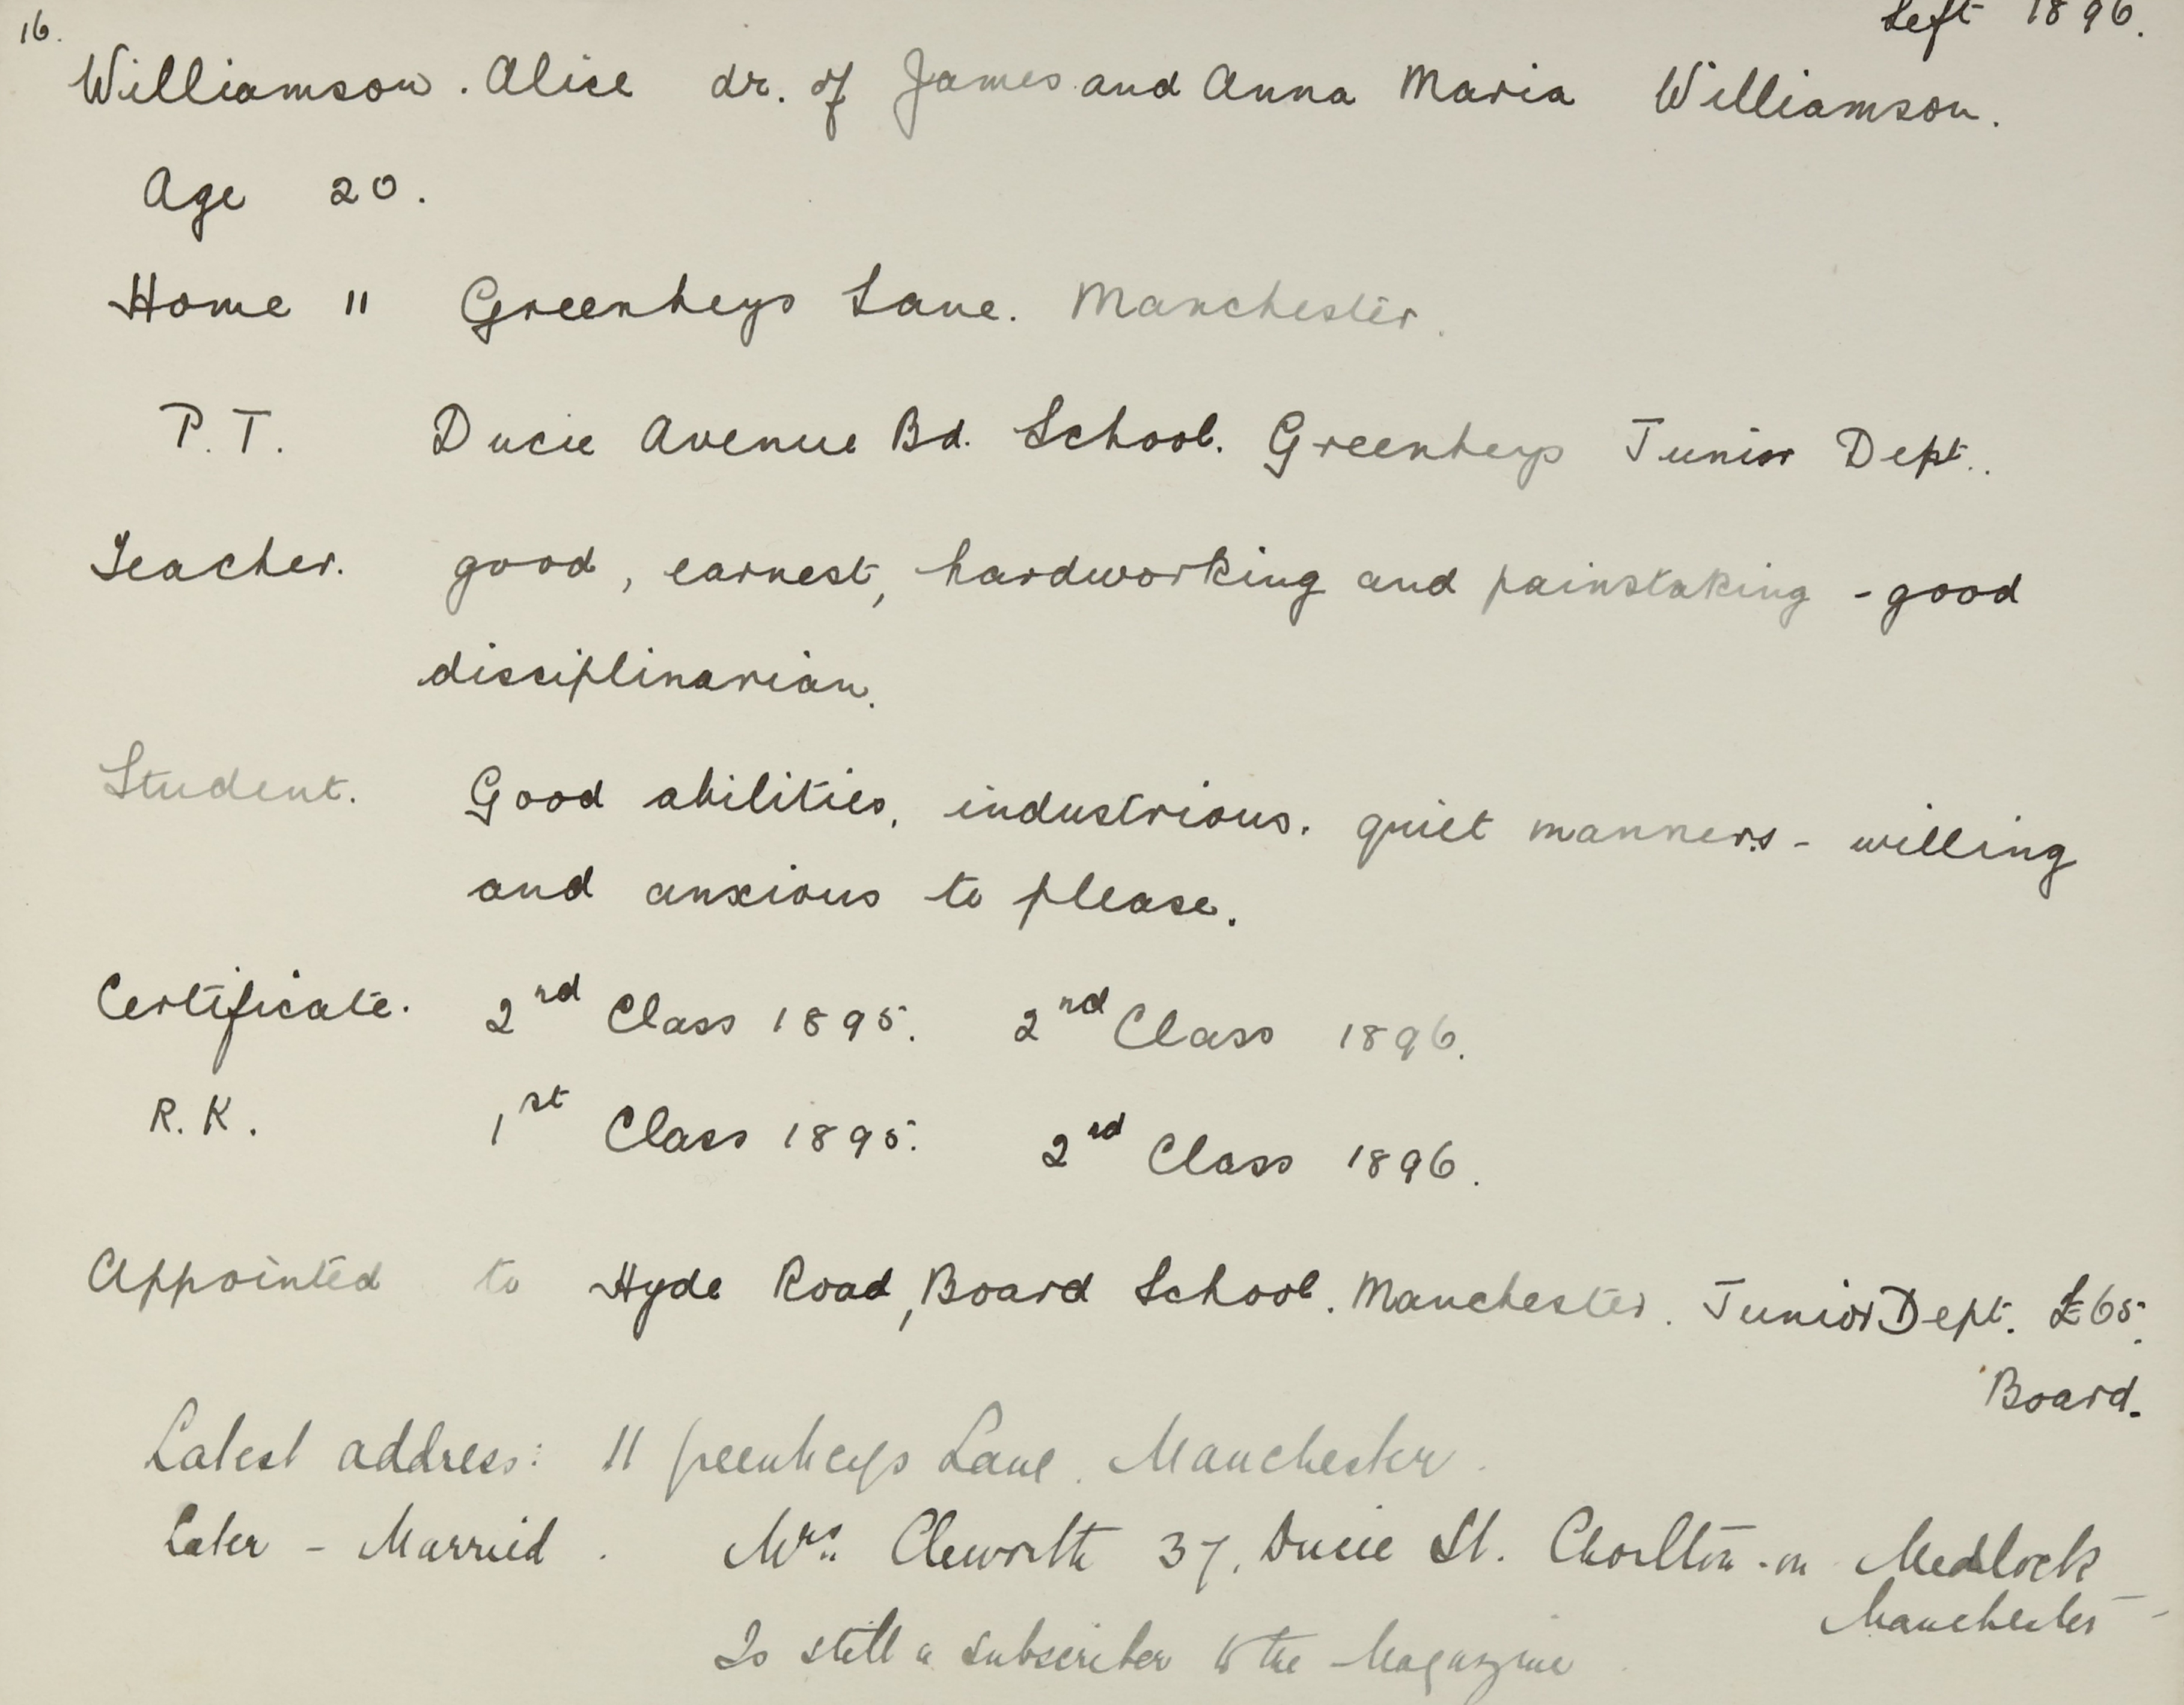 16.
Left 1896.
Williamson. Alice dr. of James and Anna Maria Williamson.
Age 20.
Home 11 Greenheys Lane. Manchester.
P.T. Ducie Avenue Bd. School. Greenheys Junior Dept..
Teacher. good, earnest, hardworking and painstaking - good
dissiplinarian.
Student. Good abilities, industrious. quiet manners - willing
and anxious to please.
Certificate. 2nd Class 1895. 2nd Class 1896.
R.K. 1st Class 1895. 2nd Class 1896.
Appointed to Hyde Road, Board School. Manchester. Junior Dept. £65.
Board.
Latest address: 11 Greenheys Lane. Manchester.
Later - Married. Mrs. Cleworth 37, Ducie St. Chorlton-on Medlock
Manchester -
Is still a subscriber to the Magazine